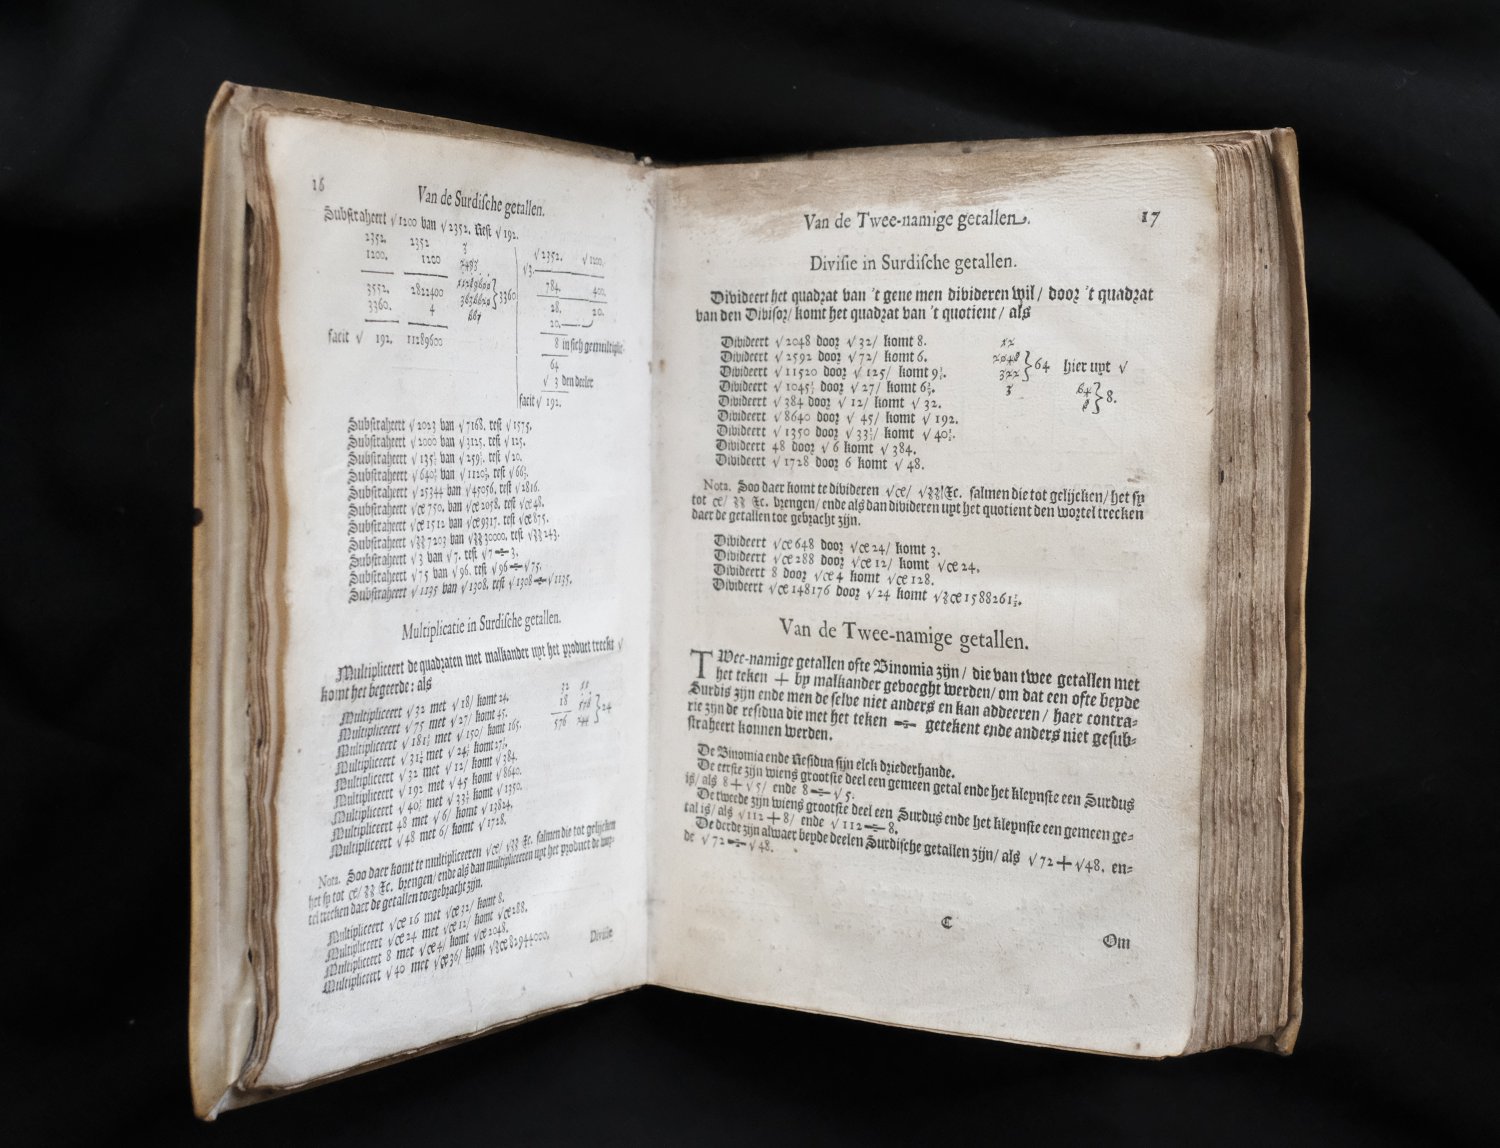 16
Van de Surdische getallen.
Substraheert √1200 van √2352. Rest √192.
2352. 2352 3
1200. 1200
3552. 2822400 }3360
3360. 4
facit √ 192. 11289600
√2352. √1200.
√3.
784. 400.
28. 20.
20.
8 in sich gemultipli-
64
√ 3 den deeler
facit √ 192.
Substraheert √2023 van √7168. rest √1575.
Substraheert √2000 van √3125. rest √125.
Substraheert √135 van √259. rest √20.
Substraheert √640 van √1120. rest √66.
Substraheert √25344 van √45056. rest √2816.
Substraheert √ce 750. van √ce 2058. rest √ce 48.
Substraheert √ce 1512 van √ce 9317. rest √ce 875.
Substraheert √ʒʒ 7203 van √ʒʒ 30000. rest √ʒʒ 243.
Substraheert √3 van √7. rest √7 ÷ 3.
Substraheert √75 van √96. rest √96 ÷ √75.
Substraheert √1135 van √1308. rest √1308 ÷ √1135.
Multiplicatie in Surdische getallen.
Multipliceert de quadraten met malkander uyt het product treckt √
komt het begeerde: als
Multipliceert √32 met √18/ komt 24.
Multipliceert √75 met √27/ komt 45.
Multipliceert √181½ met √150/ komt 165.
Multipliceert √31¼ met √24 komt 27½.
Multipliceert √32 met √12/ komt √384.
Multipliceert √192 met √45 komt √8640.
Multipliceert √40½ met √33⅓ komt √1350.
Multipliceert 48 met √6/ komt √13824.
Multipliceert √48 met 6/ komt √1728.
32
18 }24
576
Nota. Soo daer komt te multipliceeren √ce/ √ʒʒ &c. salmen die tot gelijcken
het sy tot ce/ ʒʒ &c. brengen/ ende als dan multipliceeren uyt het product de wor-
tel trecken daer de getallen toegebracht zijn.
Multipliceert √ce 16 met √ce 32/ komt 8.
Multipliceert √ce 24 met √ce 12/ komt √ce 288.
Multipliceert 8 met √ce 4/ komt √ce 2048.
Multipliceert √40 met √ce 36/ komt √ʒce 82944000.
Divisie
Van de Twee-namige getallen. 17
Divisie in Surdische getallen.
Divideert het quadrat van 't gene men divideren wil/ door 't quadrat
van den Divisor/ komt het quadrat van 't quotient/ als
Divideert √2048 door √32/ komt 8.
Divideert √2592 door √72/ komt 6.
Divideert √11520 door √125/ komt 9⅗.
Divideert √1045⅓ door √27/ komt 6.
Divideert √384 door √12/ komt √32.
Divideert √8640 door √45/ komt √192.
Divideert √1350 door √33⅓/ komt √40½.
Divideert 48 door √6 komt √384.
Divideert √1728 door 6 komt √48.
12
2048 }64 hier uyt √
322
3
64
8 }8.
Nota. Soo daer komt te divideren √ce/ √ʒʒ/&c. salmen die tot gelijcken/ het sy
tot ce/ ʒʒ &c. brengen/ ende als dan divideren uyt het quotient den wortel trecken
daer de getallen toe gebracht zijn.
Divideert √ce 648 door √ce 24/ komt 3.
Divideert √ce 288 door √ce 12/ komt √ce 24.
Divideert 8 door √ce 4 komt √ce 128.
Divideert √ce 148176 door √24 komt √ʒce 1588261.
Van de Twee-namige getallen.
TWee-namige getallen ofte Binomia zijn/ die van twee getallen met
het teken + by malkander gevoeght werden/ om dat een ofte beyde
Surdis zijn ende men de selve niet anders en kan addeeren/ haer contra-
rie zijn de residua die met het teken ÷ getekent ende anders niet gesub-
straheert konnen werden.
De Binomia ende Residua sijn elck driederhande.
De eerste zijn wiens grootste deel een gemeen getal ende het kleynste een Surdus
is/ als 8 + √5/ ende 8 ÷ √5.
De tweede zijn wiens grootste deel een Surdus ende het kleynste een gemeen ge-
tal is/ als √112 + 8/ ende √112 ÷ 8.
De derde zijn alwaer beyde deelen Surdische getallen zijn/ als √72 + √48. en-
de √72 ÷ √48.
C
Om